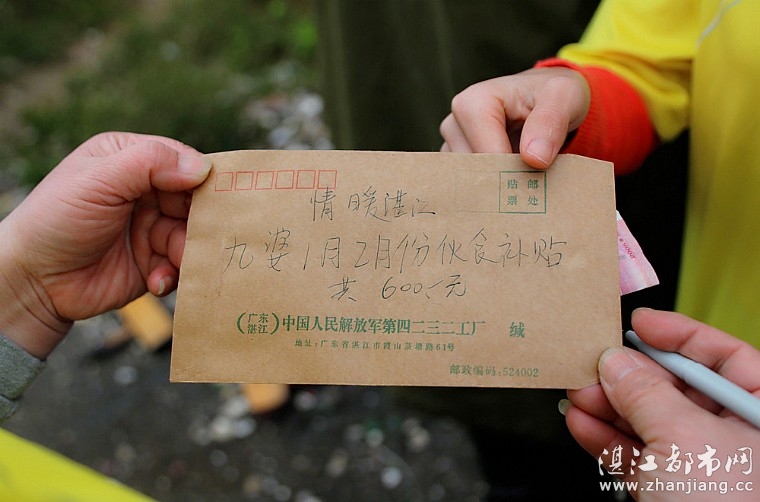 贴 邮
票 处
情暖湛江
九婆1月2月份伙食补贴
共 600.元
(广东湛江)中国人民解放军第四二三二工厂 缄
地址:广东省湛江市霞山录塘路61号
邮政编码:524002
湛江都市网
www.zhanjiang.cc